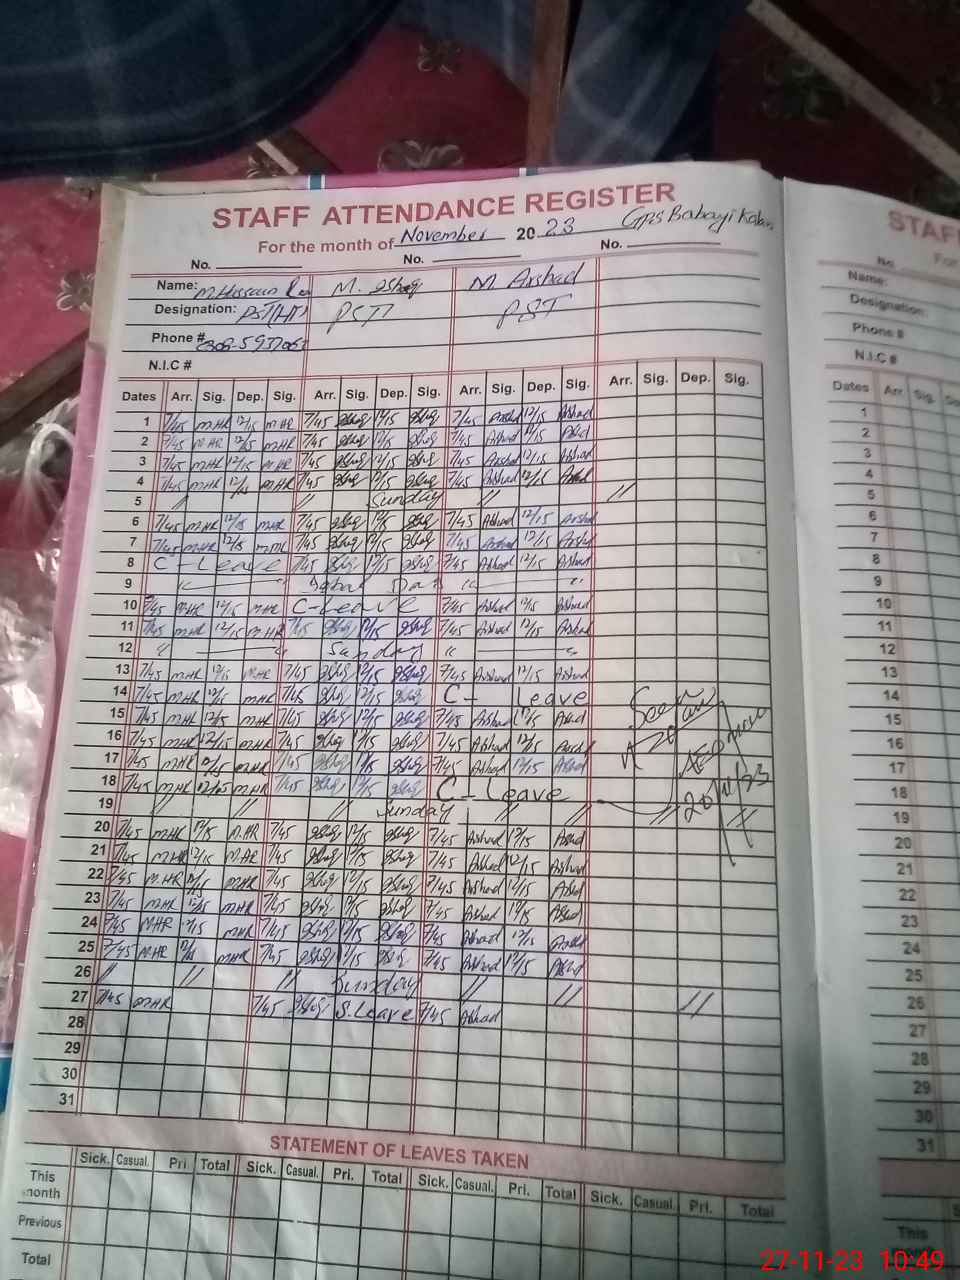 STAFF ATTENDANCE REGISTER
For the month of November 20 23 GPS Babayi
No. No. No.
Name: M. Hussain M. Ishaq M. Arshad
Designation: PST(HT) PST PST
Phone #
N.I.C #
Dates Arr. Sig. Dep. Sig. Arr. Sig. Dep. Sig. Arr. Sig. Dep. Sig. Arr. Sig. Dep. Sig.
1 7/45 MHR 12/15 MHR 7/45 Ishaq 12/15 Ishaq 7/45 Arshad 12/15 Arshad
2 7/45 MHR 12/15 MHR 7/45 Ishaq 12/15 Ishaq 7/45 Arshad 12/15 Arshad
3 7/45 MHR 12/15 MHR 7/45 Ishaq 12/15 Ishaq 7/45 Arshad 12/15 Arshad
4 7/45 MHR 12/15 MHR 7/45 Ishaq 12/15 Ishaq 7/45 Arshad 12/15 Arshad
5 // // Sunday // //
6 7/45 MHR 12/15 MHR 7/45 Ishaq 12/15 Ishaq 7/45 Arshad 12/15 Arshad
7 7/45 MHR 12/15 MHR 7/45 Ishaq 12/15 Ishaq 7/45 Arshad 12/15 Arshad
8 C-Leave 7/45 Ishaq 12/15 Ishaq 7/45 Arshad 12/15 Arshad
9 Day
10 7/45 MHR 12/15 MHR C-Leave 7/45 Arshad 12/15 Arshad
11 7/45 MHR 12/15 MHR 7/45 Ishaq 12/15 Ishaq 7/45 Arshad 12/15 Arshad
12 Sunday
13 7/45 MHR 12/15 MHR 7/45 Ishaq 12/15 Ishaq 7/45 Arshad 12/15 Arshad
14 7/45 MHR 12/15 MHR 7/45 Ishaq 12/15 Ishaq C- Leave Seen
15 7/45 MHR 12/15 MHR 7/45 Ishaq 12/15 Ishaq 7/45 Arshad 12/15 Arshad
16 7/45 MHR 12/15 MHR 7/45 Ishaq 12/15 Ishaq 7/45 Arshad 12/15 Arshad
17 7/45 MHR 12/15 MHR 7/45 Ishaq 12/15 Ishaq 7/45 Arshad 12/15 Arshad
18 7/45 MHR 12/15 MHR 7/45 Ishaq 12/15 Ishaq C-Leave 20/11/23
19 // // // Sunday // // //
20 7/45 MHR 12/15 MHR 7/45 Ishaq 12/15 Ishaq 7/45 Arshad 12/15 Arshad
21 7/45 MHR 12/15 MHR 7/45 Ishaq 12/15 Ishaq 7/45 Arshad 12/15 Arshad
22 7/45 MHR 12/15 MHR 7/45 Ishaq 12/15 Ishaq 7/45 Arshad 12/15 Arshad
23 7/45 MHR 12/15 MHR 7/45 Ishaq 12/15 Ishaq 7/45 Arshad 12/15 Arshad
24 7/45 MHR 12/15 MHR 7/45 Ishaq 12/15 Ishaq 7/45 Arshad 12/15 Arshad
25 7/45 MHR 12/15 MHR 7/45 Ishaq 12/15 Ishaq 7/45 Arshad 12/15 Arshad
26 // // // Sunday // // //
27 7/45 MHR 7/45 Ishaq S.Leave 7/45 Arshad
28
29
30
31
STATEMENT OF LEAVES TAKEN
Sick. Casual. Pri. Total Sick. Casual. Pri. Total Sick. Casual. Pri. Total Sick. Casual. Pri. Total
This month
Previous
Total
STAFF
No.
Name:
Designation:
Phone #
N.I.C #
Dates Arr. Sig.
1
2
3
4
5
6
7
8
9
10
11
12
13
14
15
16
17
18
19
20
21
22
23
24
25
26
27
28
29
30
31
This
27-11-23 10:49